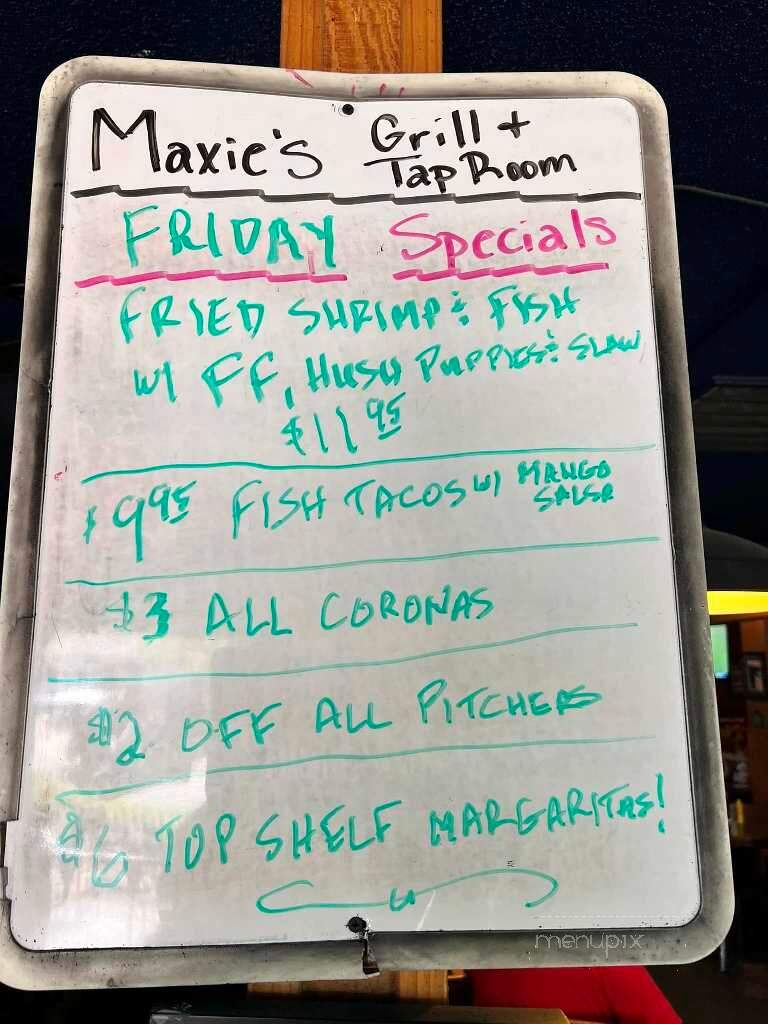 Maxie's Grill +
Tap Room
FRIDAY Specials
FRIED SHRIMP & FISH
W/ FF, HUSH PUPPIES & SLAW
$11 95
$9 95 FISH TACOS W/ MANGO
SALSA
$3 ALL CORONAS
$2 OFF ALL PITCHERS
$6 TOP SHELF MARGARITAS!
menupix